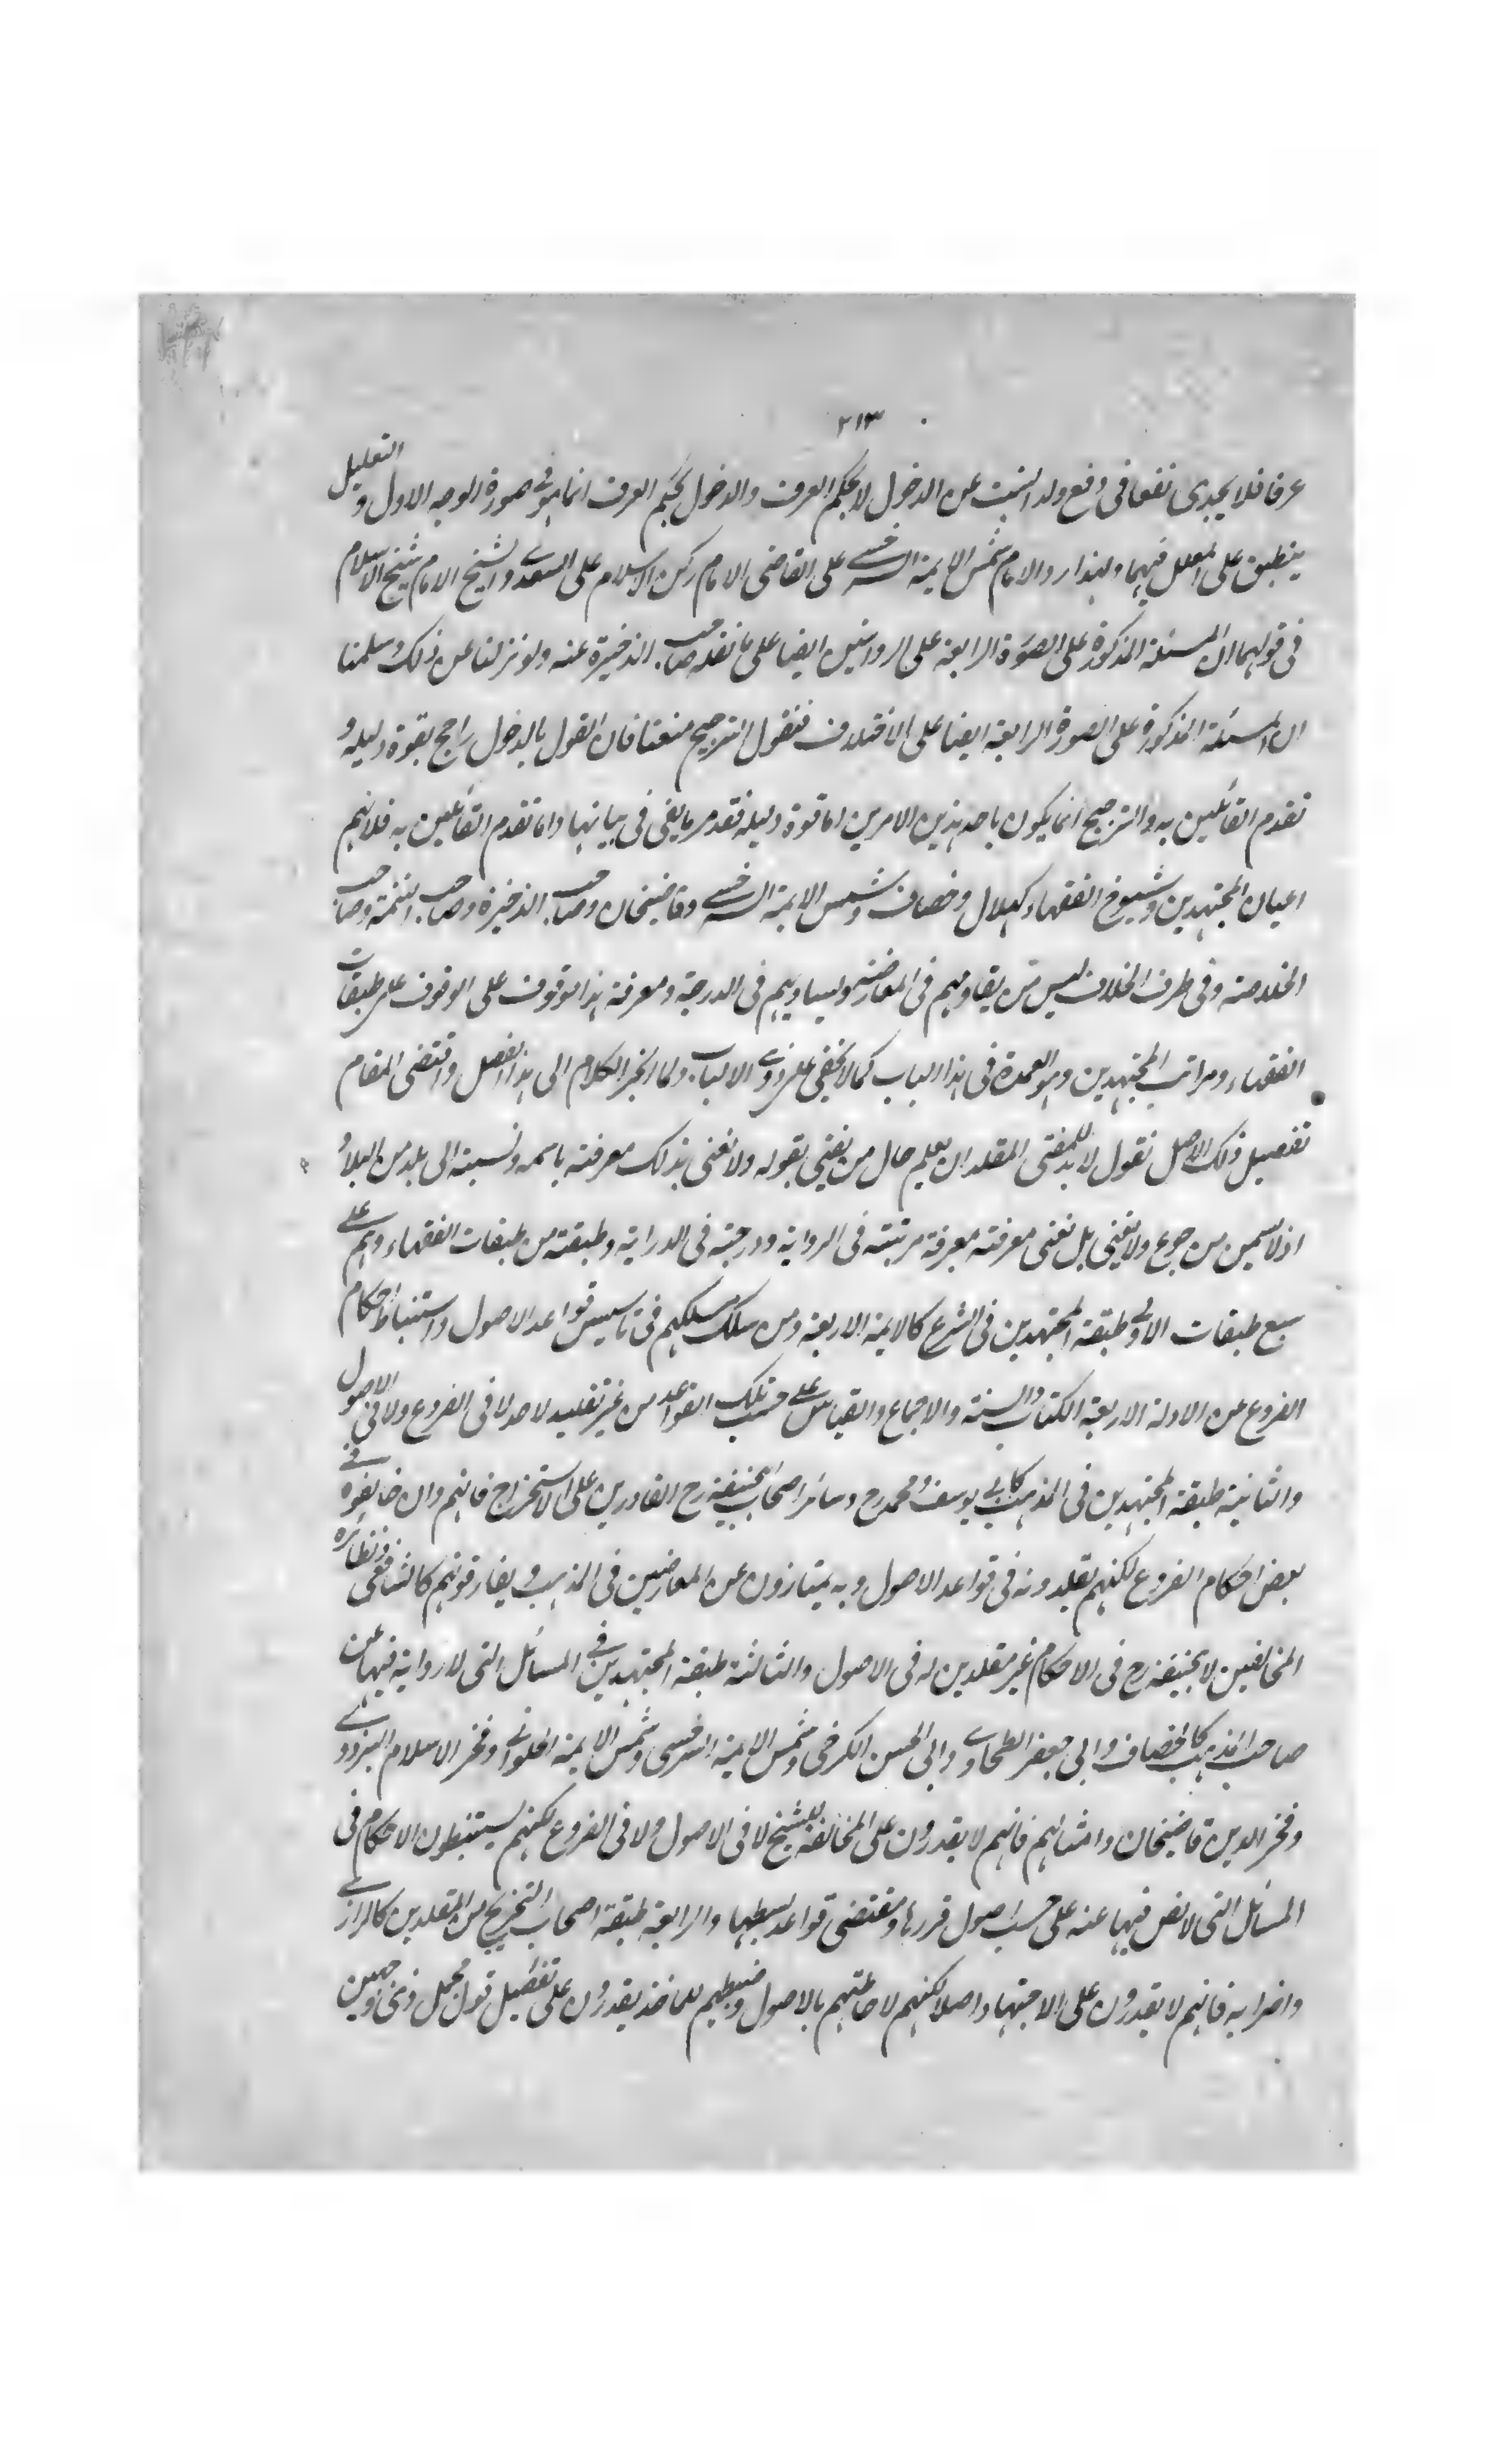 ٢١٣
عرفا فلا يجدى نفعا فى دفع ولد البنت عن الدخول لا بحكم العرف والدخول بحكم العرف انما هو فى صورة الوجه الاول والتعليل
ينطبق على المعلل فيهما ولهذا رد الامام شمس الايمة السرخسى على القاضى الامام ركن الاسلام على السعدى والشيخ الامام شيخ الاسلام
فى قولهما ان المسئلة المذكورة على الصورة الرابعة على الروايتين ايضا على ما نقله صاحب الذخيرة عنه ولو نزلنا عن ذلك وسلمنا
ان المسئلة المذكورة على الصورة الرابعة ايضا على الاختلاف فنقول الترجيح معنا فان القول بالدخول راجح بقوة دليله و
تقدم القائلين به والترجيح انما يكون باحد هذين الامرين اما قوة دليله فقد مر ما يفى فى بيانها واما تقدم القائلين به فلانهم
اعيان المجتهدين وشيوخ الفقهاء كهلال وخصاف وشمس الايمة السرخسى وقاضيخان وصاحب الذخيرة وصاحب التتمة وصاحب
الخلاصة وفى طرف الخلاف ليس من يقاومهم فى المعارضة ويساويهم فى الدرجة ومعرفة هذا موقوف على الوقوف على طبقات
الفقهاء ومراتب المجتهدين وهو العمدة فى هذا الباب كما لا يخفى على ذوى الالباب ولما انجر الكلام الى هذا الفصل واقتضى المقام
تفصيل ذلك الاصل نقول لا بد للمفتى المقلد ان يعلم حال من يفتى بقوله ولا نعنى بذلك معرفته باسمه ونسبته الى بلد من البلاد
اذ لا يسمن من جوع ولا يغنى بل نعنى معرفته معرفة مرتبته فى الرواية ودرجته فى الدراية وطبقته من طبقات الفقهاء وهم على
سبع طبقات الاولى طبقة المجتهدين فى الشرع كالايمة الاربعة ومن سلك مسلكهم فى تاسيس قواعد الاصول واستنباط احكام
الفروع عن الادلة الاربعة الكتاب والسنة والاجماع والقياس على حسب تلك القواعد من غير تقليد لاحد لا فى الفروع ولا فى الاصول
والثانية طبقة المجتهدين فى المذهب كابى يوسف ومحمد رح وسائر اصحاب ابيحنيفة رح القادرين على الاستخراج فانهم وان خالفوه فى
بعض احكام الفروع لكنهم يقلدونه فى قواعد الاصول وبه يمتازون عن المعارضين فى المذهب ويفارقونهم كالشافعى ونظائره
المخالفين لابيحنيفة رح فى الاحكام غير مقلدين له فى الاصول والثالثة طبقة المجتهدين فى المسائل التى لا رواية فيها عن
صاحب المذهب كالخصاف وابى جعفر الطحاوى وابى الحسن الكرخى وشمس الايمة السرخسى وشمس الايمة الحلوانى وفخر الاسلام البزدوى
وفخر الدين قاضيخان وامثالهم فانهم لا يقدرون على المخالفة للشيخ لا فى الاصول ولا فى الفروع لكنهم يستنبطون الاحكام فى
المسائل التى لا نص فيها عنه على حسب اصول قررها ومقتضى قواعد بسطها والرابعة طبقة اصحاب التخريج من المقلدين كالرازى
واضرابه فانهم لا يقدرون على الاجتهاد اصلا لكنهم لاحاطتهم بالاصول وضبطهم للماخذ يقدرون على تفصيل قول مجمل ذى وجهين